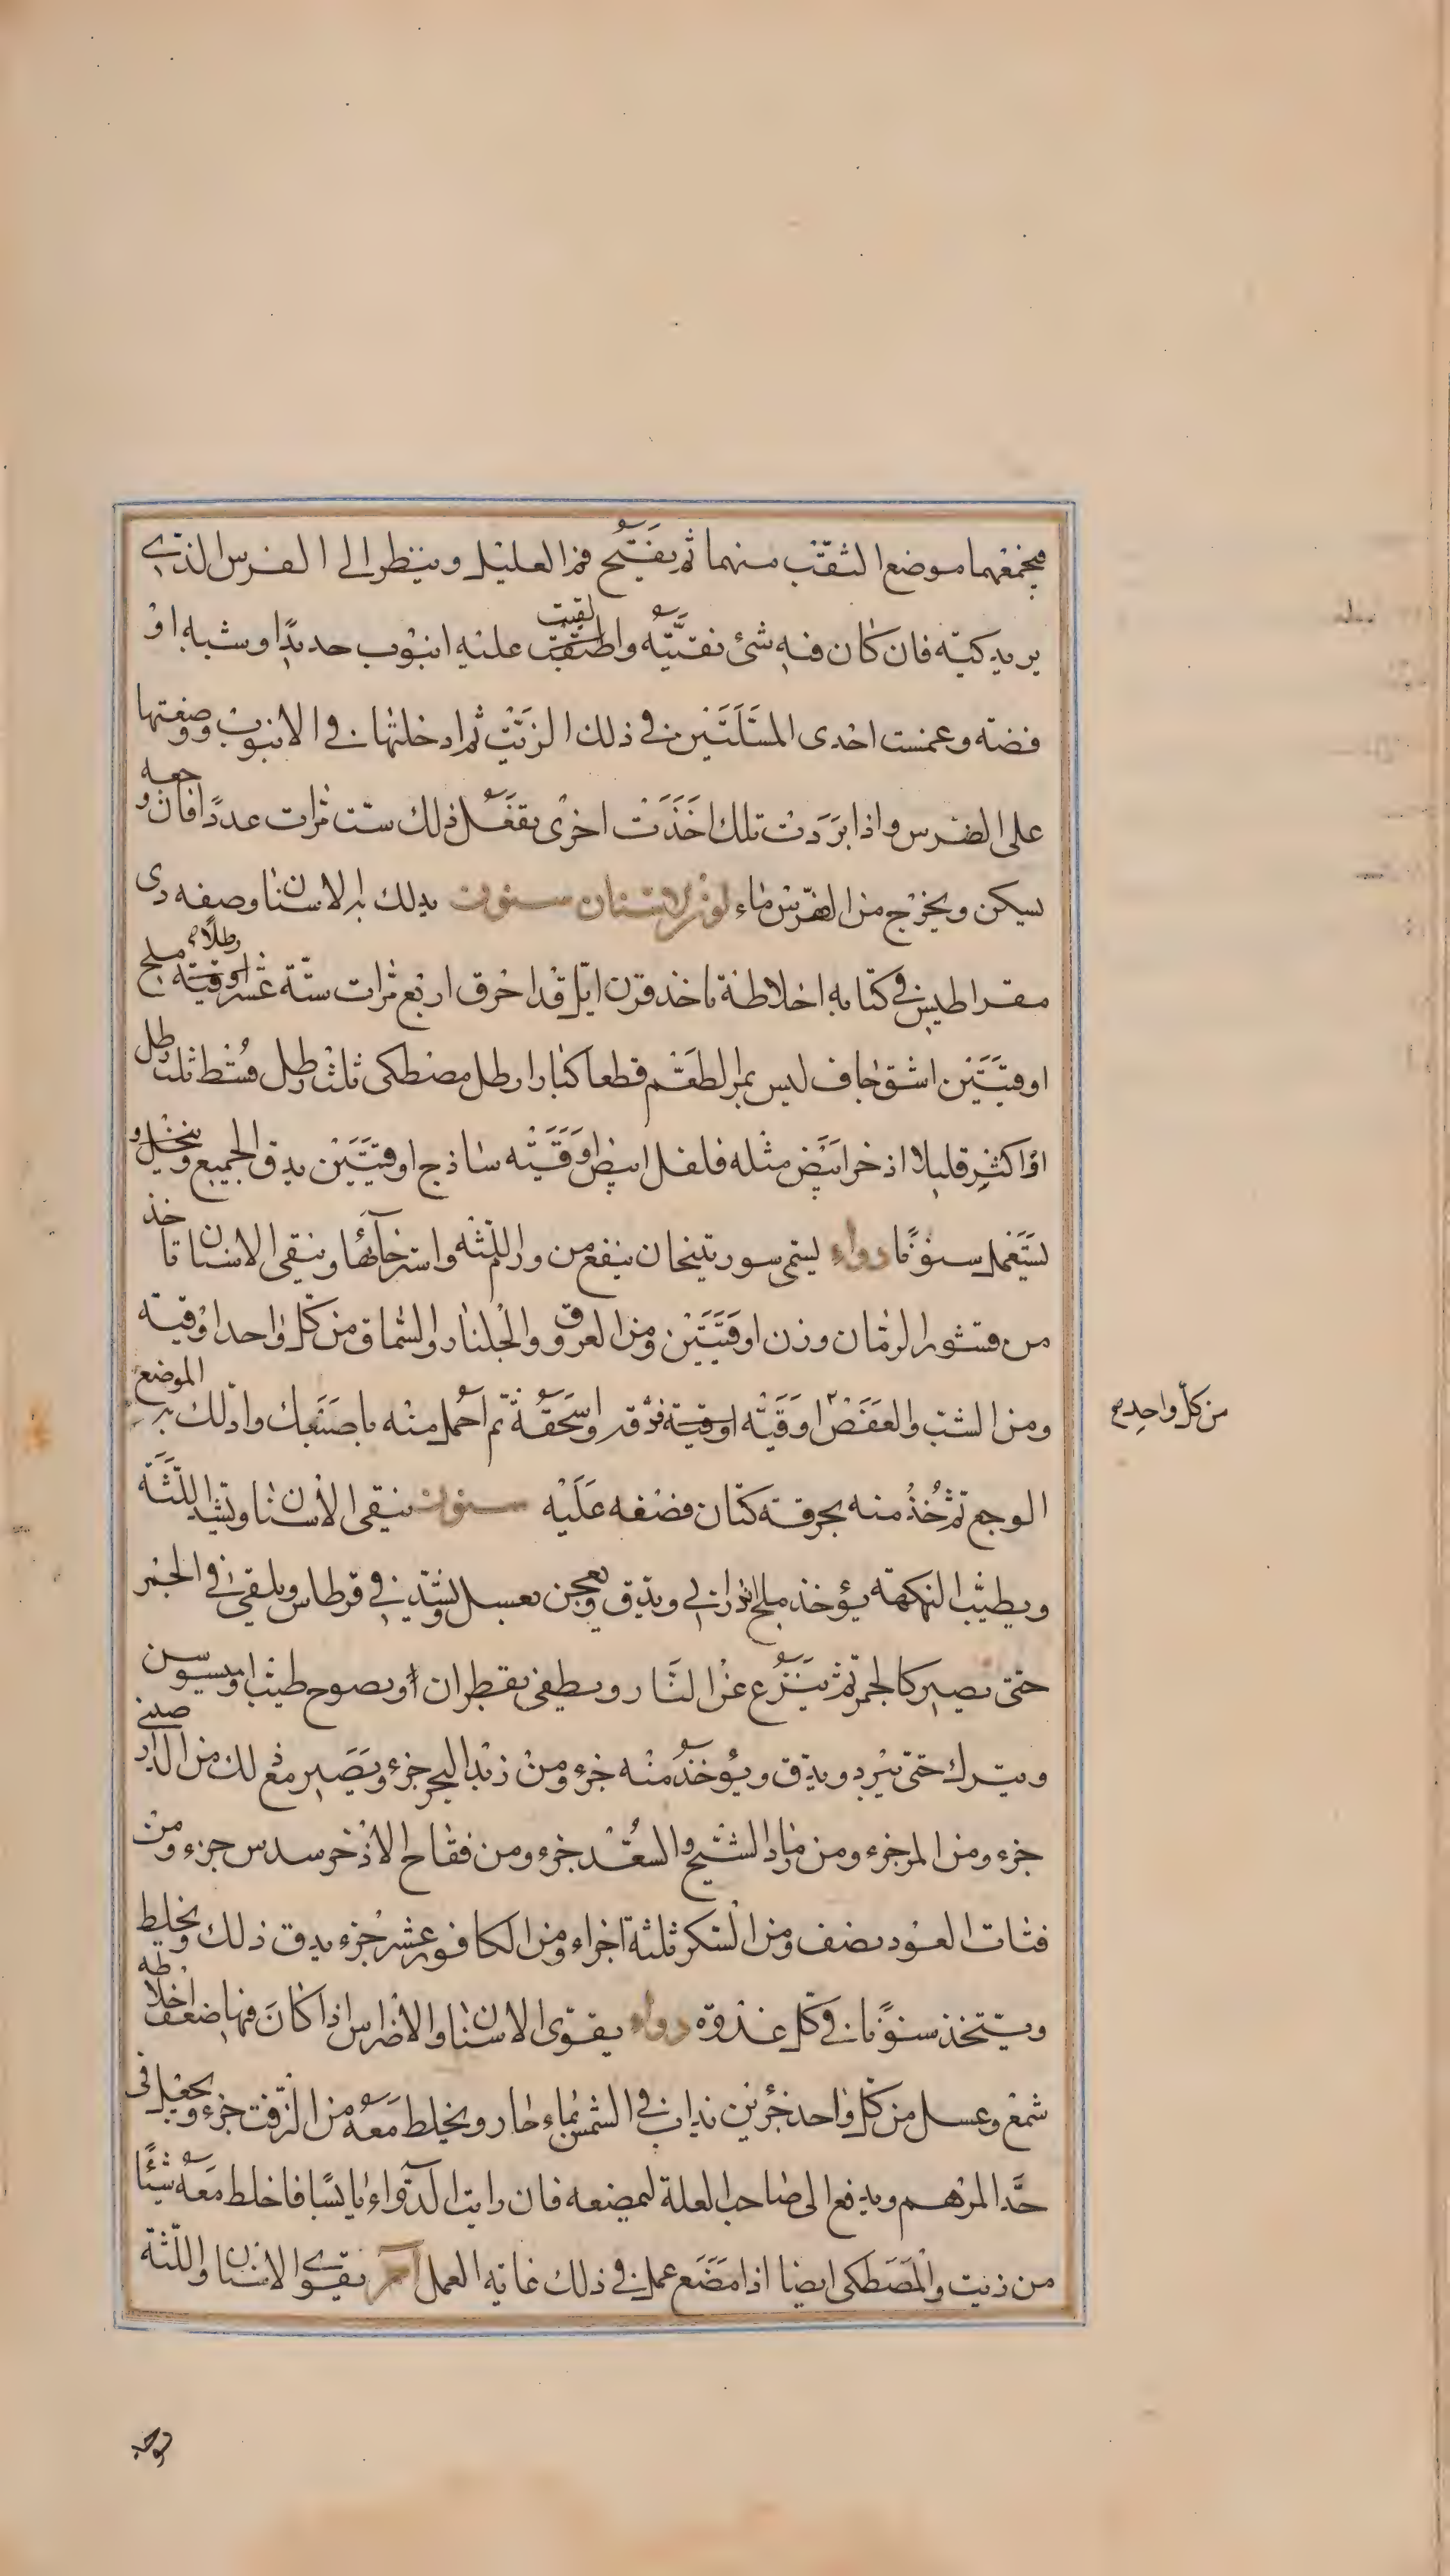 فيجمعهما موضع الثقب منهما ثم يفتح فم العليل وينظر الى الضرس الذي
يريد كيه فان كان فيه شئ نقيته واطبقت عليه انبوب حديدا وشبه او
فضة وغمست احدى المسلتين في ذلك الزيت ثم ادخلتها في الانبوب ووضعتها
على الضرس واذا بردت تلك اخذت اخرى يفعل ذلك ست مرات عددا فان وجعه
يسكن ويخرج من الضرس ماء سنون يدلك به الاسنان وصفه دى
مقراطيس في كتابه اخلاطه تاخذ قرن ايل قد احرق اربع مرات ستة عشر اوقية رطلا ملح
اوقيتين اشق جاف ليس بمر الطعم قطعا كبارا رطل مصطكى ثلث رطل قسط ثلث رطل
او اكثر قليلا اذخر ابيض مثله فلفل ابيض اوقية ساذج اوقيتين يدق الجميع وينخل و
يستعمل سنونا دواء يسمى سورتيخان ينفع من ورم اللثه واسترخائها وينقى الاسنان تاخذ
من قشور الرمان وزن اوقيتين ومن العروق والجلنار والسماق من كل واحد اوقية
ومن الشب والعفص اوقية اوقية فدق واسحقه ثم احمل منه باصبعك وادلك به الموضع
من كل واحد
الوجع ثم خذ منه بخرقة كتان فضعه عليه سنون ينقى الاسنان ويشد اللثة
ويطيب النكهة يؤخذ ملح اندراني ويدق ويعجن بعسل ويشد في قرطاس ويلقى في الجمر
حتى يصير كالجمر ثم ينزع عن النار ويطفى بقطران او بصوح طيب او ميسوسن
ويترك حتى يبرد ويدق ويؤخذ منه جزء ومن زبد البحر جزء ويصير مع ذلك من الدار صيني
جزء ومن المر جزء ومن رماد الشيح والسعد جزء ومن فقاح الاذخر سدس جزء ومن
فتات العود نصف ومن السكر ثلثة اجزاء ومن الكافور عشر جزء يدق ذلك ويخلط
ويتخذ سنونا في كل غدوة دواء يقوى الاسنان والاضراس اذا كان فيها ضعف اخلاطه
شمع وعسل من كل واحد جزئين يذاب في الشمس بماء حار ويخلط معه من الزفت جزء ويجعل في
حد المرهم ويدفع الى صاحب العلة ليمضغه فان رايت الدواء يابسا فاخلط معه شيئا
من زيت والمصطكى ايضا اذا مضغ عمل في ذلك غاية العمل آخر يقوي الاسنان واللثة